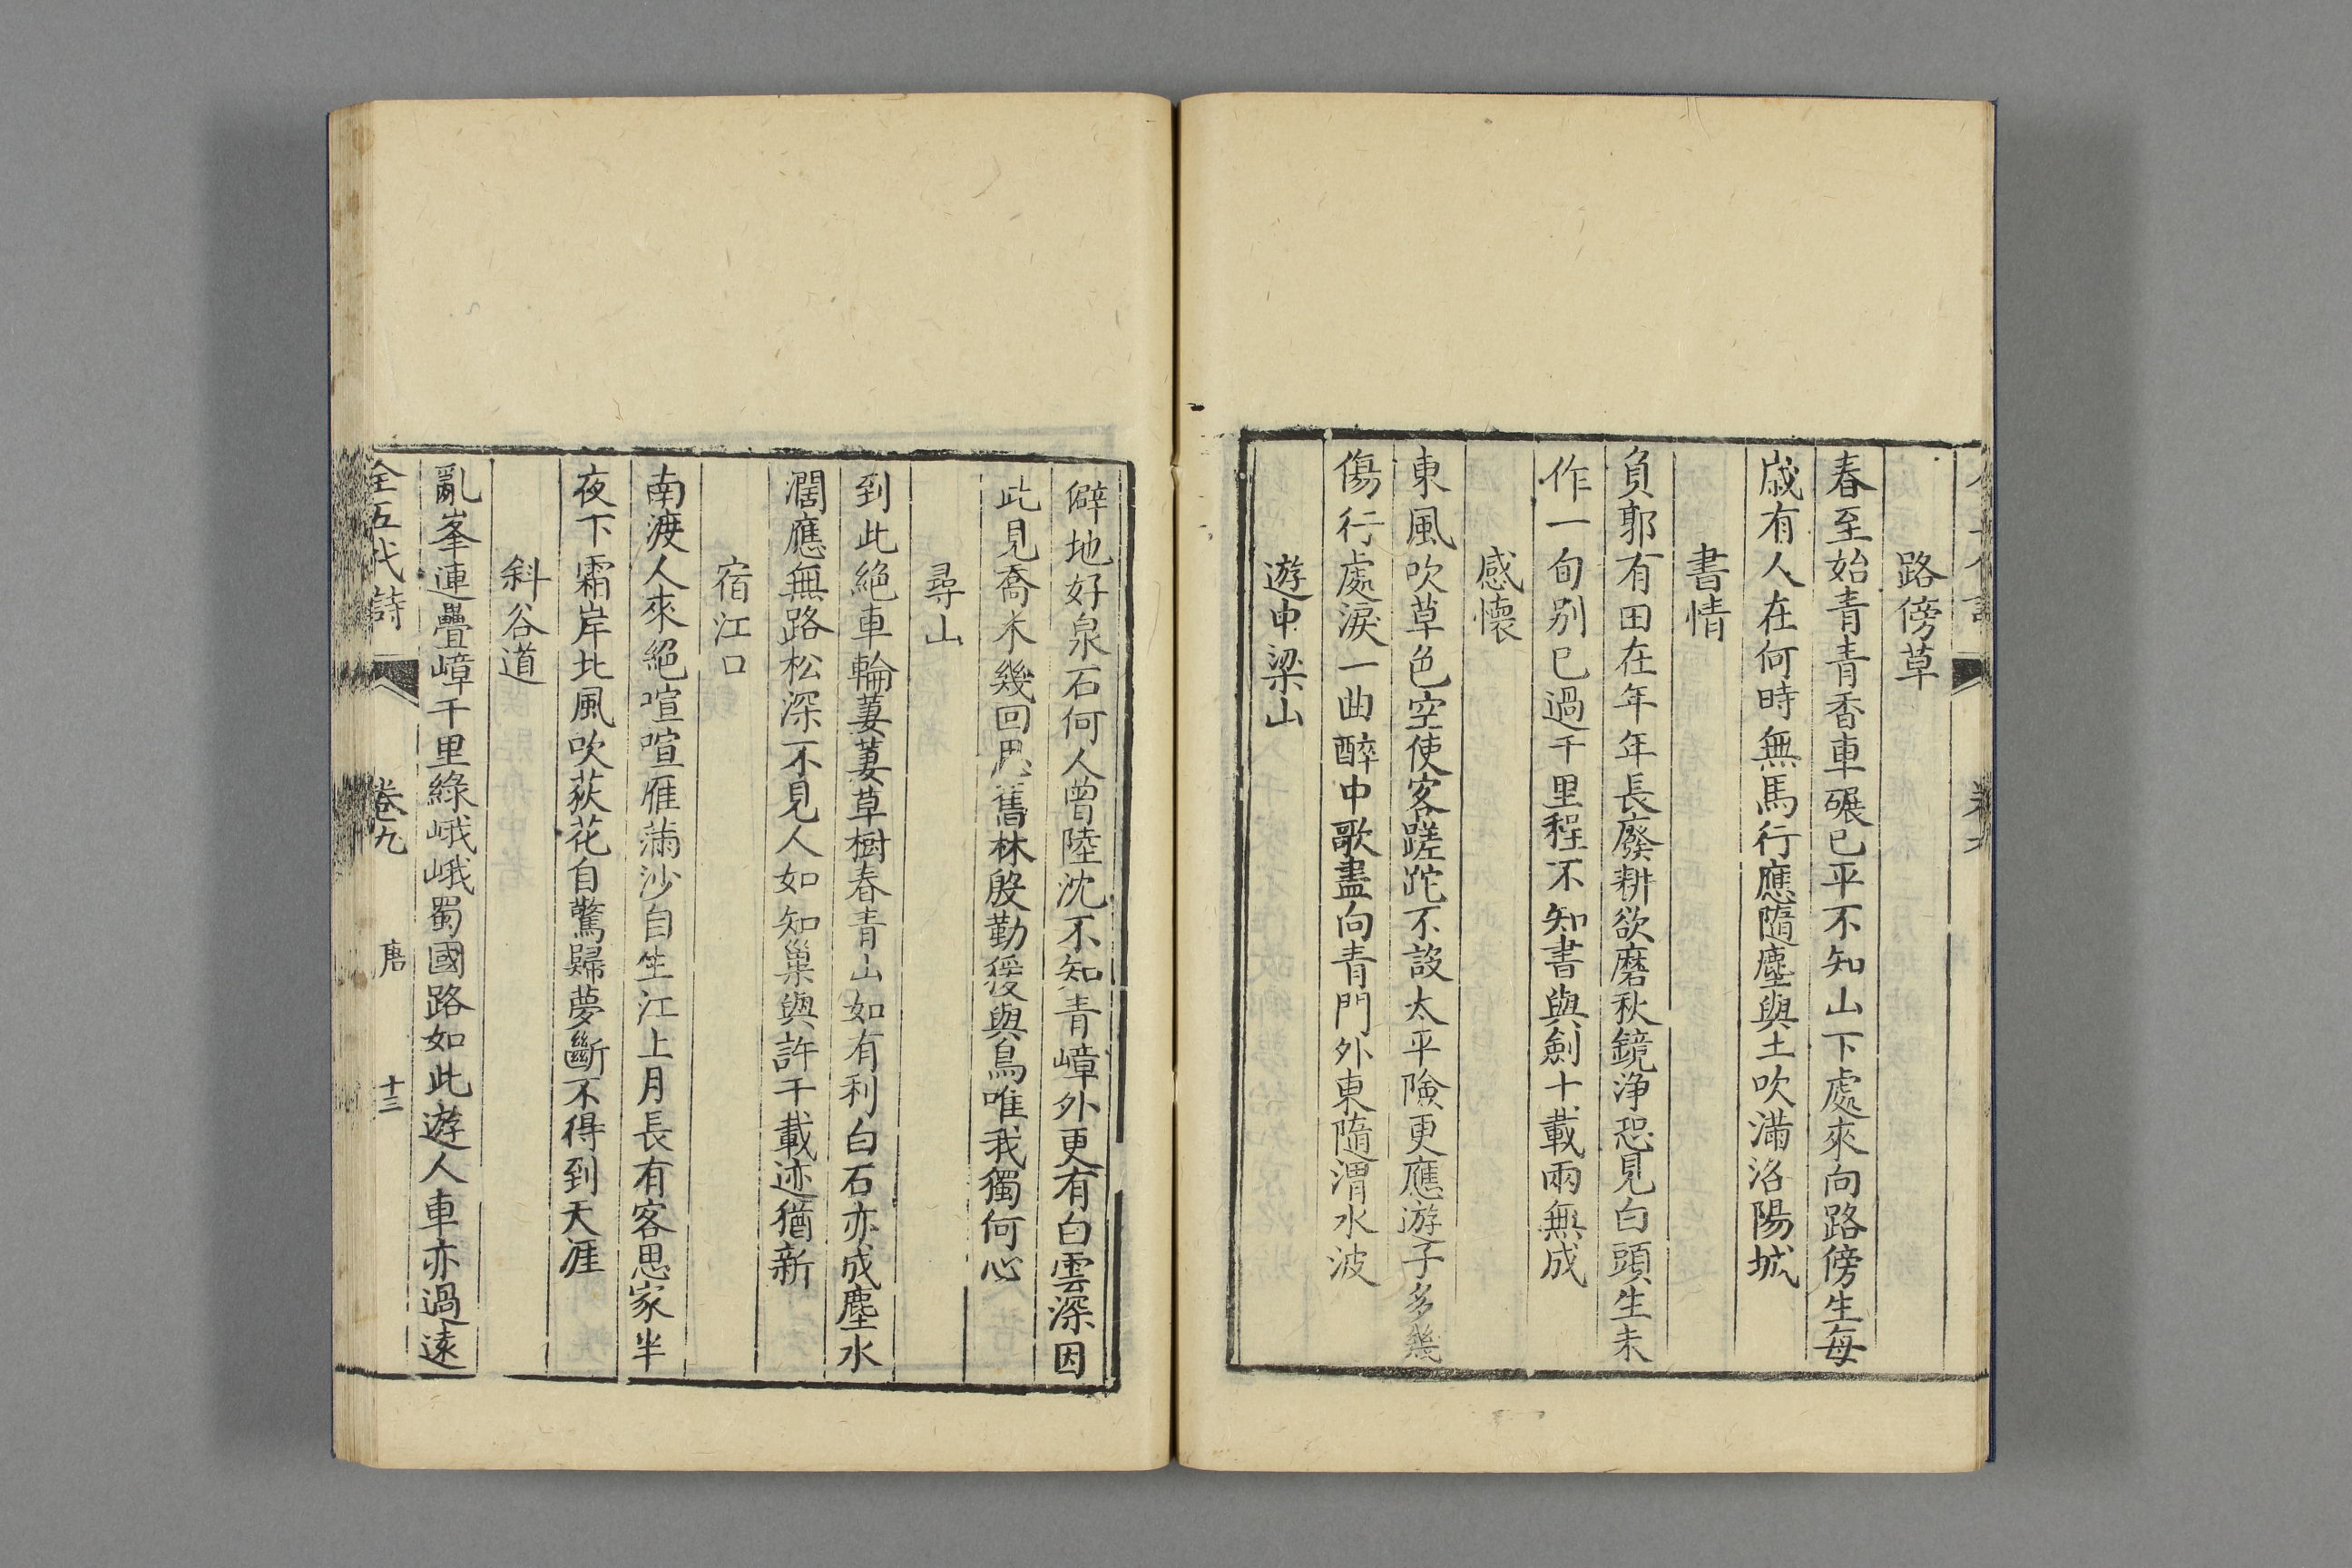 路傍草
春至始青青香車碾已平不知山下處來向路傍生每
歲有人在何時無馬行應隨塵與土吹滿洛陽城
書情
負郭有田在年年長廢耕欲磨秋鏡淨恐見白頭生未
作一旬别已過千里程不知書與劍十載兩無成
感懷
東風吹草色空使客蹉跎不設太平險更應遊子多幾
傷行處淚一曲醉中歌盡向青門外東隨渭水波
遊中梁山
僻地好泉石何人曾陸沈不知青嶂外更有白雲深因
此見喬木幾回思舊林殷勤猨與鳥唯我獨何心
尋山
到此絕車輪萋萋草樹春青山如有利白石亦成塵水
濶應無路松深不見人如知巢與許千載迹猶新
宿江口
南渡人來絕喧喧雁滿沙自生江上月長有客思家半
夜下霜岸北風吹荻花自驚歸夢斷不得到天涯
斜谷道
亂峯連疊嶂千里綠峨峨蜀國路如此遊人車亦過遠
全五代詩 卷九 唐 十三